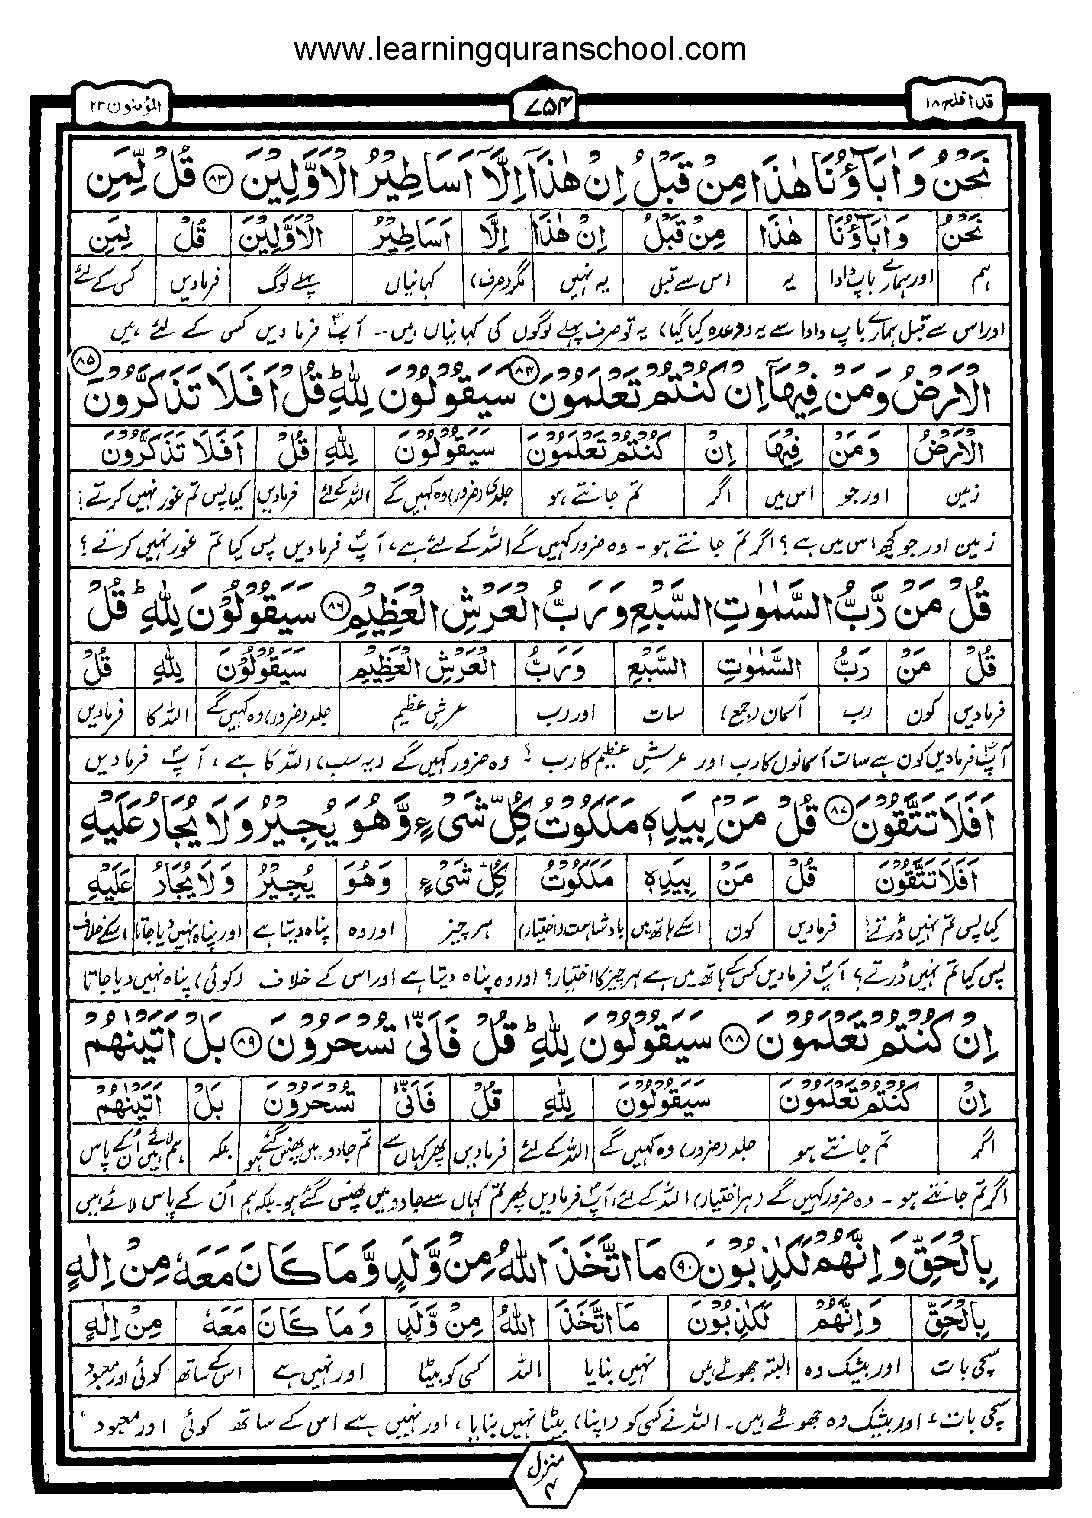 www.learningquranschool.com
المؤمنون ۲۳
۷۵۴
قد افلح ۱۸
نَحْنُ وَاٰبَآؤُنَا هٰذَا مِنْ قَبْلُ اِنْ هٰذَآ اِلَّآ اَسَاطِيْرُ الْاَوَّلِيْنَ ۸۳ قُلْ لِّمَنِ
نَحْنُ وَاٰبَآؤُنَا هٰذَا مِنْ قَبْلُ اِنْ هٰذَا اِلَّا اَسَاطِيْرُ الْاَوَّلِيْنَ قُلْ لِمَنِ
ہم اور ہمارے باپ دادا یہ اس سے قبل یہ نہیں مگر (صرف) کہانیاں پہلے لوگ فرمادیں کس کے لئے
اور اس سے قبل ہمارے باپ دادا سے یہ (وعدہ کیا گیا) یہ تو صرف پہلے لوگوں کی کہانیاں ہیں۔ آپ فرمادیں کس کے لئے ہیں
الْاَرْضُ وَمَنْ فِيْهَآ اِنْ كُنْتُمْ تَعْلَمُوْنَ ۸۴ سَيَقُوْلُوْنَ لِلّٰهِ ؕ قُلْ اَفَلَا تَذَكَّرُوْنَ ۸۵
الْاَرْضُ وَمَنْ فِيْهَا اِنْ كُنْتُمْ تَعْلَمُوْنَ سَيَقُوْلُوْنَ لِلّٰهِ قُلْ اَفَلَا تَذَكَّرُوْنَ
زمین اور جو اس میں اگر تم جانتے ہو جلدی (ضرور) وہ کہیں گے اللہ کے لئے فرمادیں کیا پس تم غور نہیں کرتے؟
زمین اور جو کچھ اس میں ہے؟ اگر تم جانتے ہو۔ وہ ضرور کہیں گے اللہ کے لئے ہے، آپ فرمادیں پس کیا تم غور نہیں کرتے؟
قُلْ مَنْ رَّبُّ السَّمٰوٰتِ السَّبْعِ وَرَبُّ الْعَرْشِ الْعَظِيْمِ ۸۶ سَيَقُوْلُوْنَ لِلّٰهِ ؕ قُلْ
قُلْ مَنْ رَبُّ السَّمٰوٰتِ السَّبْعِ وَرَبُّ الْعَرْشِ الْعَظِيْمِ سَيَقُوْلُوْنَ لِلّٰهِ قُلْ
فرمادیں کون رب آسمان (جمع) سات اور رب عرش عظیم جلد (ضرور) وہ کہیں گے اللہ کا فرمادیں
آپ فرمادیں کون ہے سات آسمانوں کا رب اور عرش عظیم کا رب؟ وہ ضرور کہیں گے (یہ سب) اللہ کا ہے، آپ فرمادیں
اَفَلَا تَتَّقُوْنَ ۸۷ قُلْ مَنْۢ بِيَدِهٖ مَلَكُوْتُ كُلِّ شَیْءٍ وَّهُوَ يُجِيْرُ وَلَا يُجَارُ عَلَيْهِ
اَفَلَا تَتَّقُوْنَ قُلْ مَنْ بِيَدِهٖ مَلَكُوْتُ كُلِّ شَیْءٍ وَهُوَ يُجِيْرُ وَلَا يُجَارُ عَلَيْهِ
کیا پس تم نہیں ڈرتے؟ فرمادیں کون اسکے ہاتھ میں بادشاہت (اختیار) ہر چیز اور وہ پناہ دیتا ہے اور پناہ نہیں دیا جاتا اسکے خلاف
پس کیا تم نہیں ڈرتے؟ آپ فرمادیں کس کے ہاتھ میں ہے ہر چیز کا اختیار؟ اور وہ پناہ دیتا ہے اور اس کے خلاف (کوئی) پناہ نہیں دیا جاتا
اِنْ كُنْتُمْ تَعْلَمُوْنَ ۸۸ سَيَقُوْلُوْنَ لِلّٰهِ ؕ قُلْ فَاَنّٰى تُسْحَرُوْنَ ۸۹ بَلْ اَتَيْنٰهُمْ
اِنْ كُنْتُمْ تَعْلَمُوْنَ سَيَقُوْلُوْنَ لِلّٰهِ قُلْ فَاَنّٰى تُسْحَرُوْنَ بَلْ اَتَيْنٰهُمْ
اگر تم جانتے ہو جلد (ضرور) وہ کہیں گے اللہ کے لئے فرمادیں پھر کہاں سے تم جادو میں پھنس گئے ہو بلکہ ہم لائے ہیں اُن کے پاس
اگر تم جانتے ہو۔ وہ ضرور کہیں گے (ہر اختیار) اللہ کے لئے، آپ فرمادیں پھر تم کہاں سے جادو میں پھنس گئے ہو۔ بلکہ ہم اُن کے پاس لائے ہیں
بِالْحَقِّ وَاِنَّهُمْ لَكٰذِبُوْنَ ۹۰ مَا اتَّخَذَ اللّٰهُ مِنْ وَّلَدٍ وَّمَا كَانَ مَعَهٗ مِنْ اِلٰهٍ
بِالْحَقِّ وَاِنَّهُمْ لَكٰذِبُوْنَ مَا اتَّخَذَ اللّٰهُ مِنْ وَّلَدٍ وَمَا كَانَ مَعَهٗ مِنْ اِلٰهٍ
سچی بات اور بیشک وہ البتہ جھوٹے ہیں نہیں بنایا اللہ کسی کو بیٹا اور نہیں ہے اس کے ساتھ کوئی اور معبود
سچی بات، اور بیشک وہ جھوٹے ہیں۔ اللہ نے کسی کو (اپنا) بیٹا نہیں بنایا، اور نہیں ہے اس کے ساتھ کوئی اور معبود،
منزل ۴